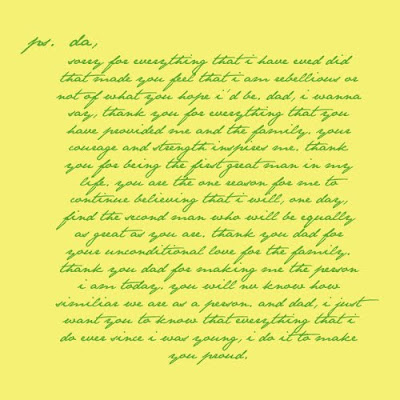 ps. da,
sorry for everything that i have eved did
that made you feel that i am rebellious or
not of what you hope i'd be. dad, i wanna
say, thank you for everything that you
have provided me and the family. your
courage and strength inspires me. thank
you for being the first great man in my
life. you are the one reason for me to
continue believing that i will, one day,
find the second man who will be equally
as great as you are. thank you dad for
your unconditional love for the family.
thank you dad for making me the person
i am today. you will nv know how
similiar we are as a person. and dad, i just
want you to know that everything that i
do ever since i was young, i do it to make
you proud.